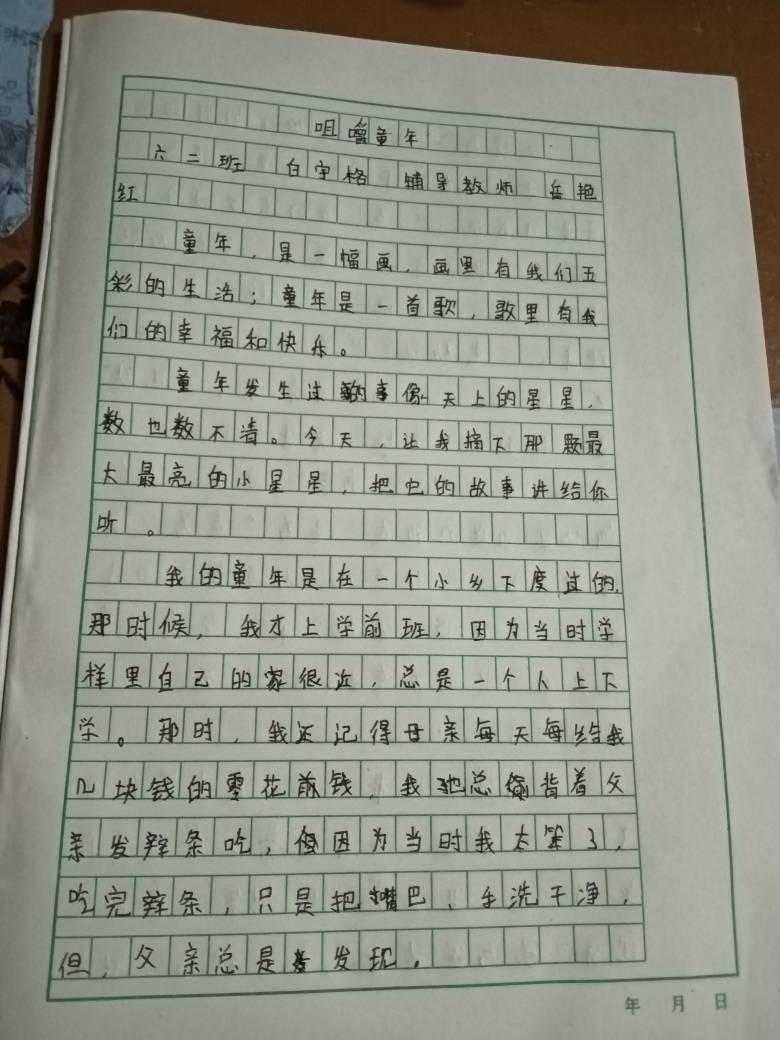 咀嚼童年
六二班 白宇格 辅导教师 岳艳
红
童年,是一幅画,画里有我们五
彩的生活;童年是一首歌,歌里有我
们的幸福和快乐。
童年发生过的事像天上的星星,
数也数不清。今天,让我摘下那颗最
大最亮的小星星,把它的故事讲给你
听。
我的童年是在一个小乡下度过的,
那时候,我才上学前班,因为当时学
样里自己的家很近,总是一个人上下
学。那时,我还记得母亲每天每给我
几块钱的零花前钱,我总偷背着父
亲发辩条吃,但因为当时我太笨了,
吃完辩条,只是把嘴巴、手洗干净,
但,父亲总是发现。
年 月 日